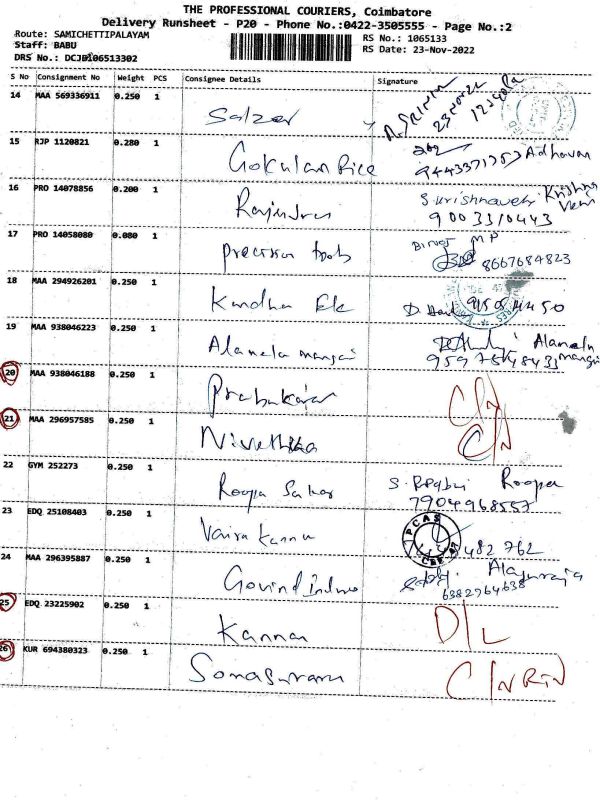 THE PROFESSIONAL COURIERS, Coimbatore
Delivery Runsheet - P20 - Phone No.:0422-3505555 - Page No.:2
Route: SAMICHETTIPALAYAM RS No.: 1065133
Staff: BABU RS Date: 23-Nov-2022
DRS No.: DCJB106513302
S No Consignment No Weight PCS Consignee Details Signature
14 MAA 569336911 0.250 1 Salzer
15 RJP 1120821 0.280 1 Gokulam Rice 9443371753 Adhavan
16 PRO 14078856 0.200 1 Rajindran S. Krishnaveni Krishna Veni
9003310443
17 PRO 14058080 0.080 1 precision tools Binoj MP
8667684823
18 MAA 294926201 0.250 1 Kandha
19 MAA 938046223 0.250 1 Alamelu mangai Alamelu mangai
20 MAA 938046188 0.250 1 Prabakaran C/N
21 MAA 296957585 0.250 1 Nivethika C/N
22 GYM 252273 0.250 1 Roopa Roopa
7904968557
23 EDQ 25108403 0.250 1 Vaira Kannu PCAS
482 762
24 MAA 296395887 0.250 1 Govind
6382964638
25 EDQ 23225902 0.250 1 Kannan D/L
26 KUR 694380323 0.250 1 C/N RTN